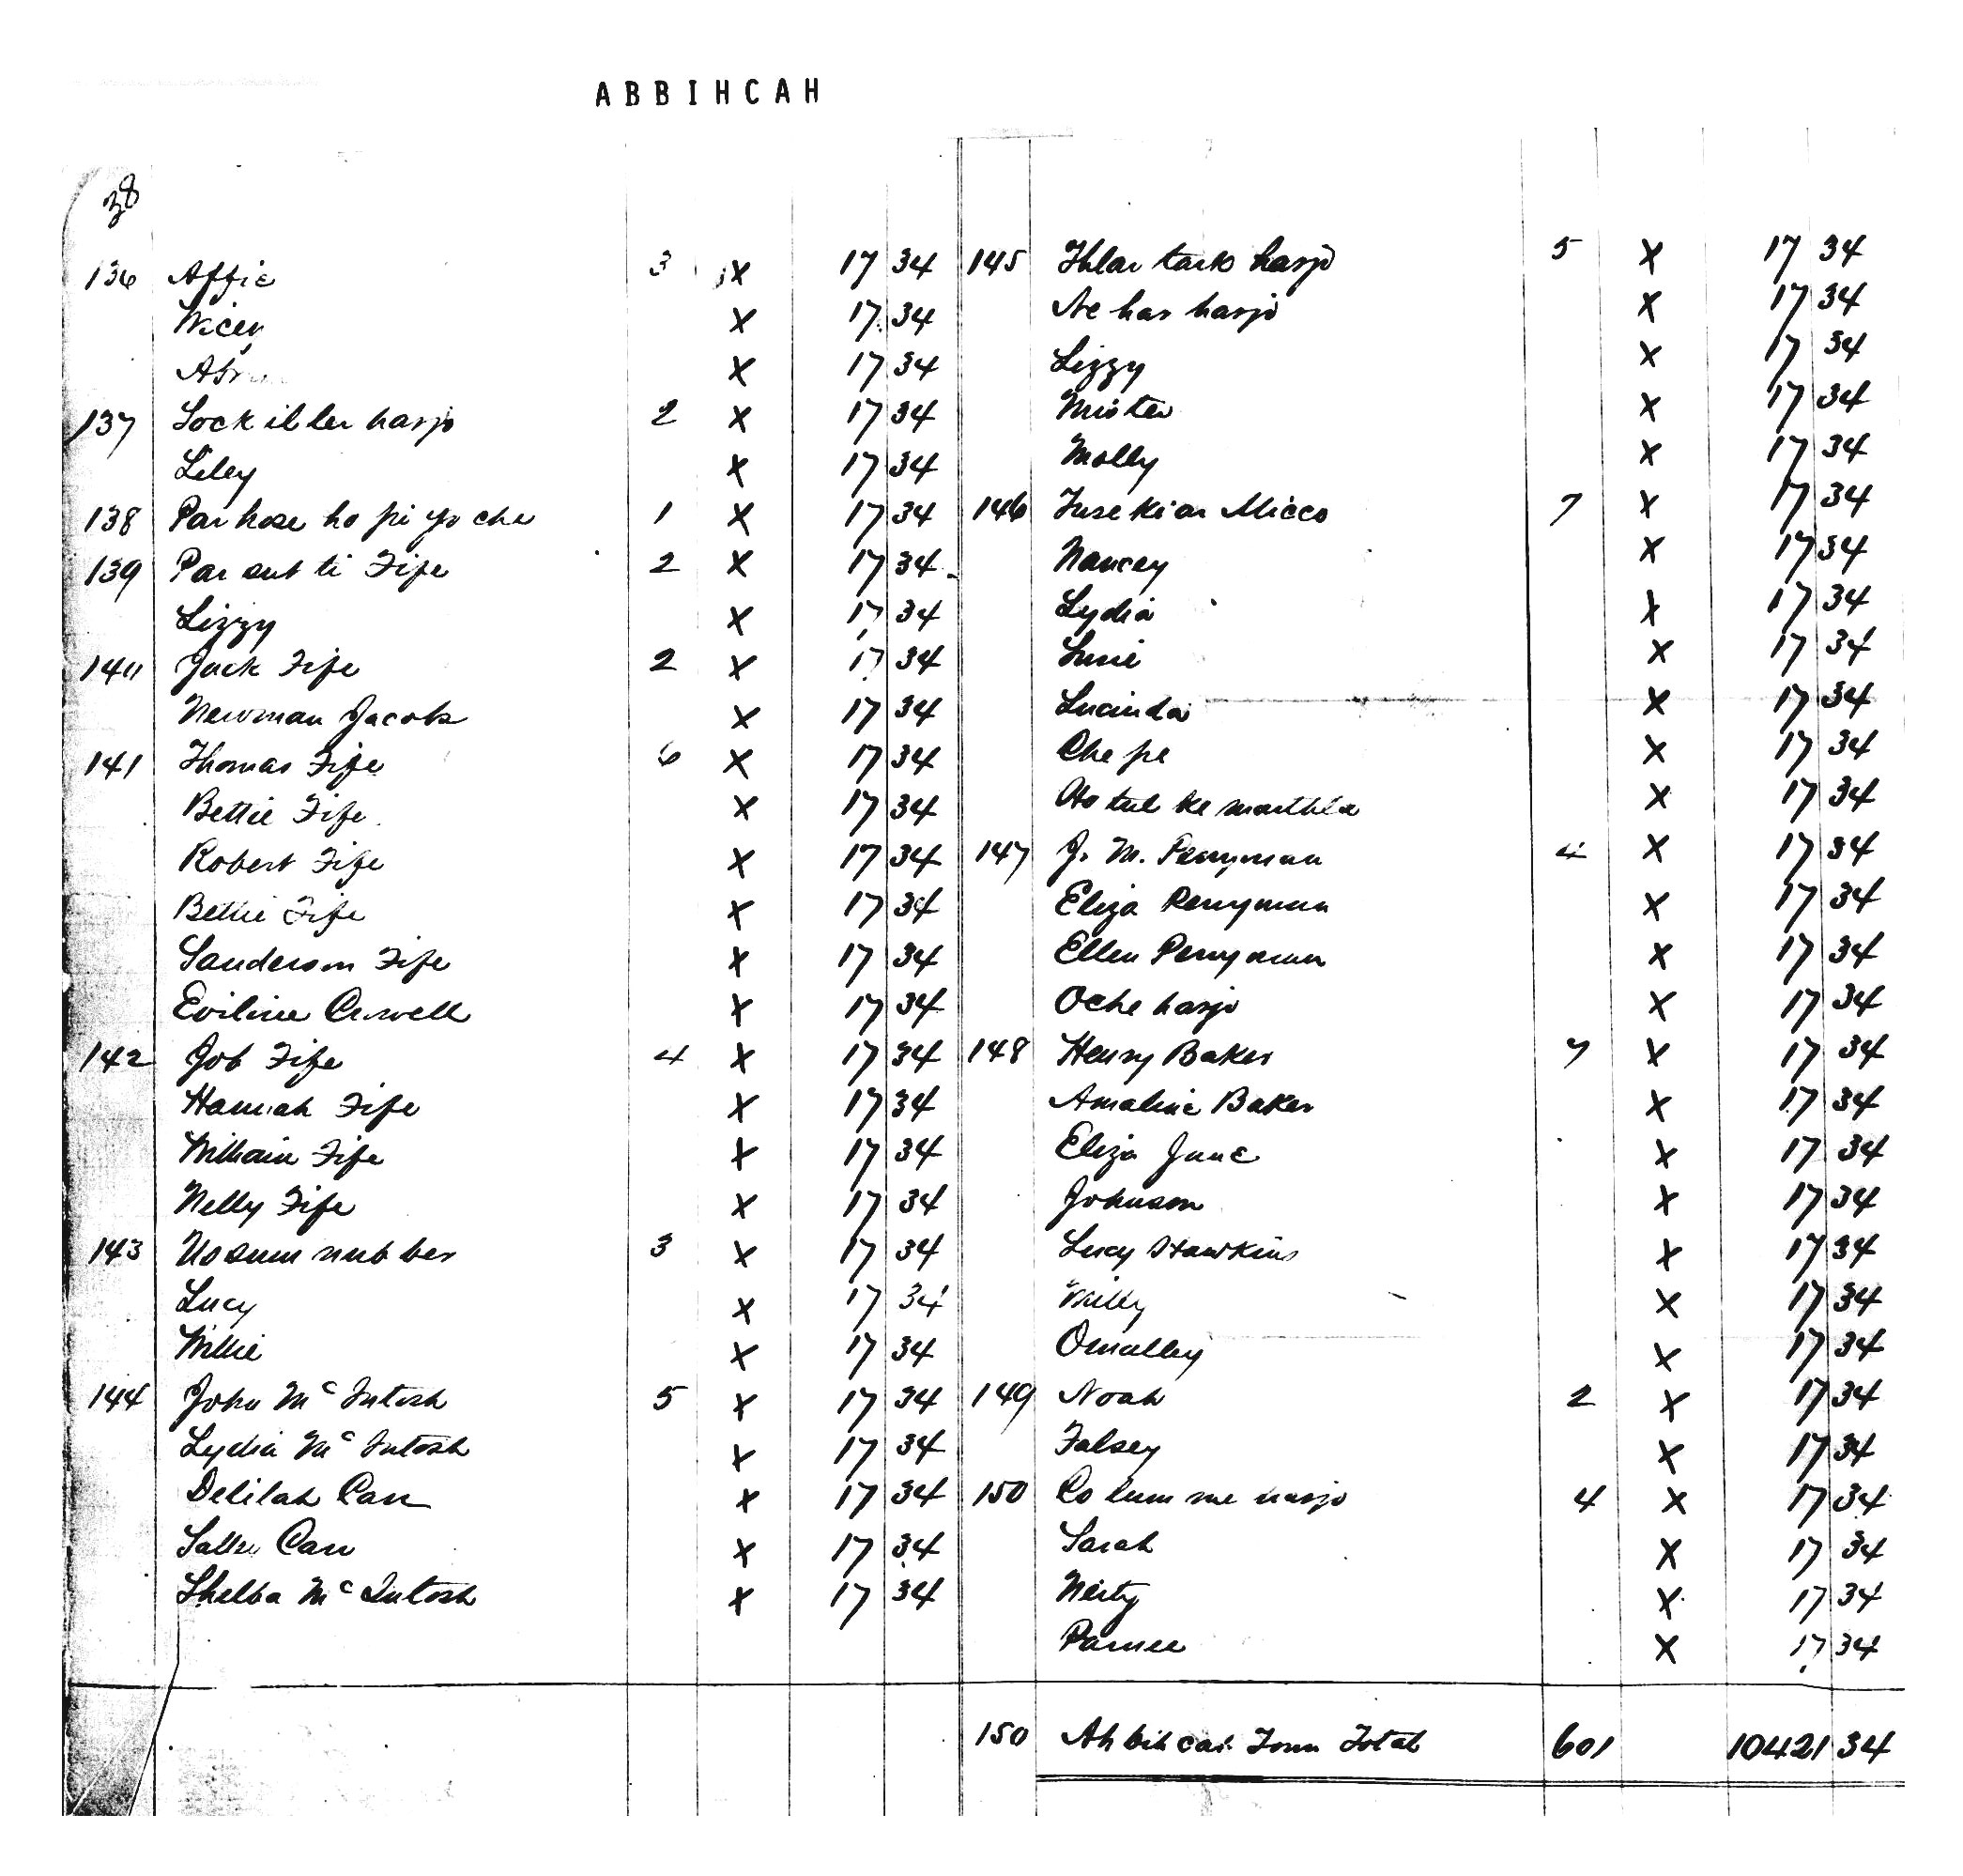 ABBIHCAH
38
136 Affie 3 X 17 34
Nicey X 17 34
X 17 34
137 Lock il ler harjo 2 X 17 34
Liley X 17 34
138 Par hose ho pi yo che 1 X 17 34
139 Par sut ti Fife 2 X 17 34
Lizzy X 17 34
140 Jack Fife 2 X 17 34
Newman Jacobs X 17 34
141 Thomas Fife 6 X 17 34
Bettie Fife X 17 34
Robert Fife X 17 34
Bettie Fife X 17 34
Sanderson Fife X 17 34
Eviline X 17 34
142 Job Fife 4 X 17 34
Hannah Fife X 17 34
William Fife X 17 34
Nelly Fife X 17 34
143 No cum nub ber 3 X 17 34
Lucy X 17 34
Willie X 17 34
144 John McIntosh 5 X 17 34
Lydia McIntosh X 17 34
Delilah Carr X 17 34
Carr X 17 34
Shelba McIntosh X 17 34
145 Thlar tark harjo 5 X 17 34
Ne har harjo X 17 34
Lizzy X 17 34
X 17 34
Molly X 17 34
146 Tuse ki ar Micco 7 X 17 34
Nancey X 17 34
Lydia X 17 34
X 17 34
Lucinda X 17 34
Che pe X 17 34
Ho tul ke marthla X 17 34
147 J. M. Perryman 4 X 17 34
Eliza Perryman X 17 34
Ellen Perryman X 17 34
Oche harjo X 17 34
148 Henry Baker 7 X 17 34
Amaline Baker X 17 34
Eliza Jane X 17 34
Johnson X 17 34
Lucy Hawkins X 17 34
X 17 34
Omalley X 17 34
149 Noah 2 X 17 34
Falsey X 17 34
150 Co lum me harjo 4 X 17 34
Sarah X 17 34
X 17 34
X 17 34
150 Ah bih cah Town Total 601 10421 34